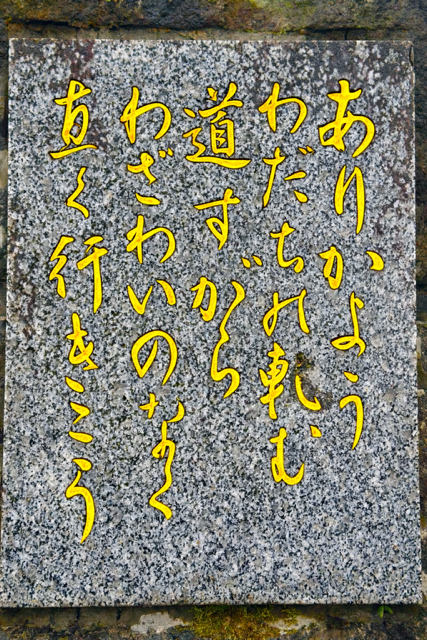 ありかよう
わだちの軋む
道すがら
わざわいのなく
直く行きこう